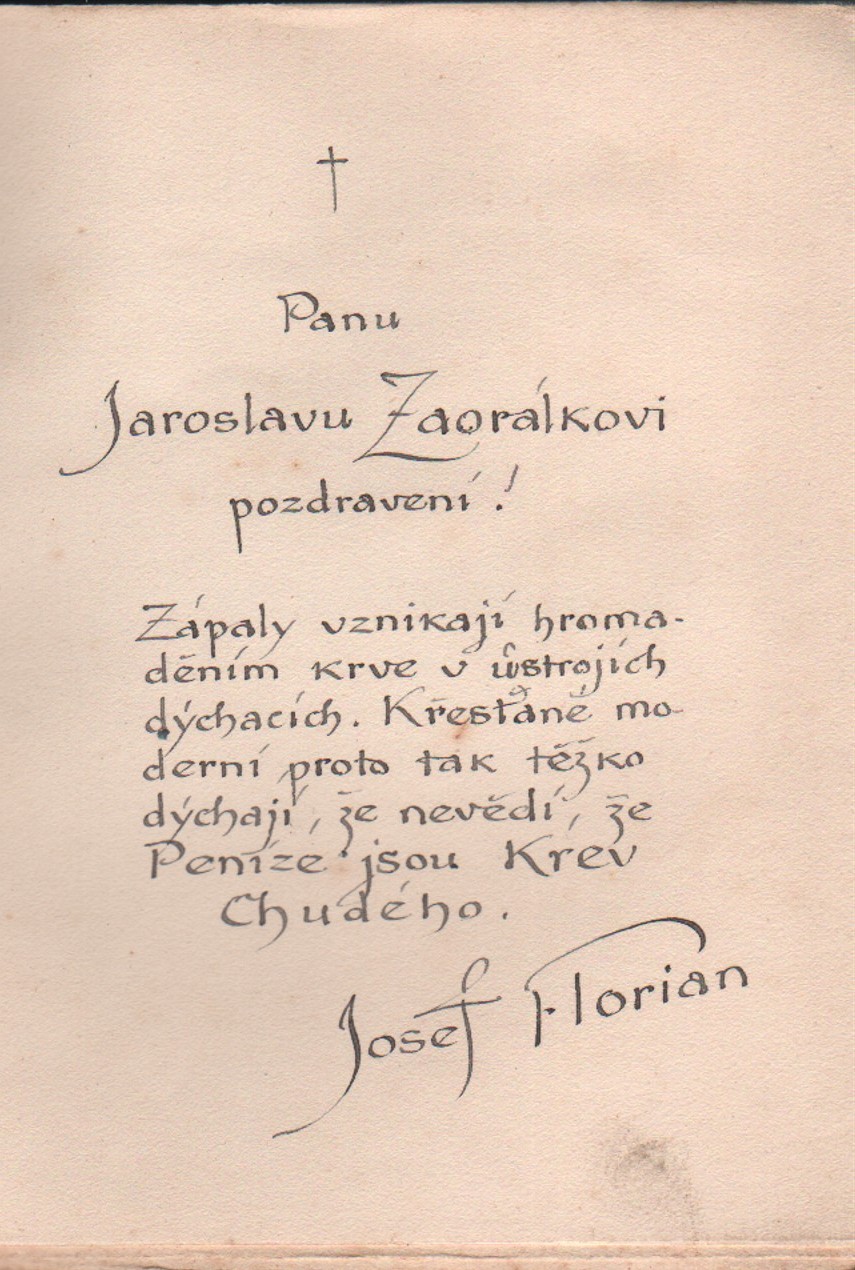 †
Panu
Jaroslavu Zaorálkovi
pozdravení!
Zápaly vznikají hroma-
děním krve v ůstrojích
dýchacích. Křesťané mo-
derní proto tak těžko
dýchají, že nevědí, že
Peníze jsou Krev
Chudého.
Josef Florian